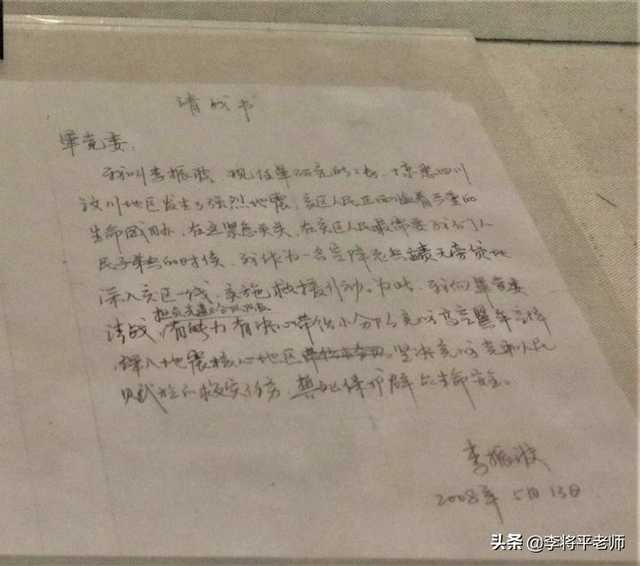 请战书
军党委:
我叫李振波,现任军研究所所长,惊悉四川
汶川地区发生了强烈地震,灾区人民正面临着严重的
生命威胁,在这紧急关头,在灾区人民最需要我们人
民子弟兵的时候,我作为一名空降兵 义无旁贷地
深入灾区一线,实施救援行动。为此,我向军党委
请战,有能力有决心带领小分队 高空 伞降
深入地震核心地区 坚决完成党和人民
赋予的救灾任务 保护群众生命安全。
李振波
2008年5月13日
头条 @李将平老师